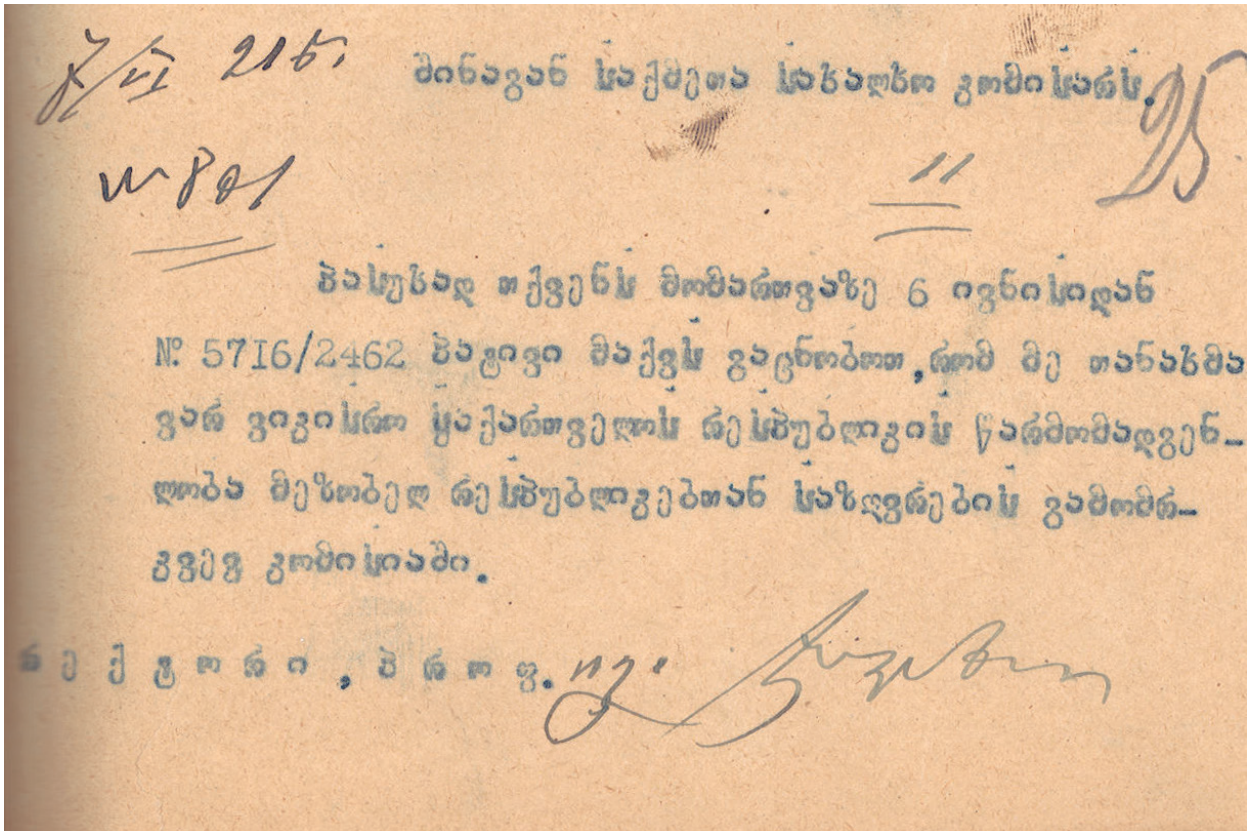 7/VI 21 წ.
შინაგან საქმეთა სახალხო კომისარს.
25
№ 801
11
პასუხად თქვენს მომართვაზე 6 ივნისიდან
№ 57I6/2462 პატივი მაქვს გაცნობოთ,რომ მე თანახმა
ვარ ვიკისრო საქართველოს რესპუბლიკის წარმომადგენ-
ლობა მეზობელ რესპუბლიკებთან საზღვრების გამომრ-
კვევ კომისიაში.
რექტორი, პროფ. ივ.